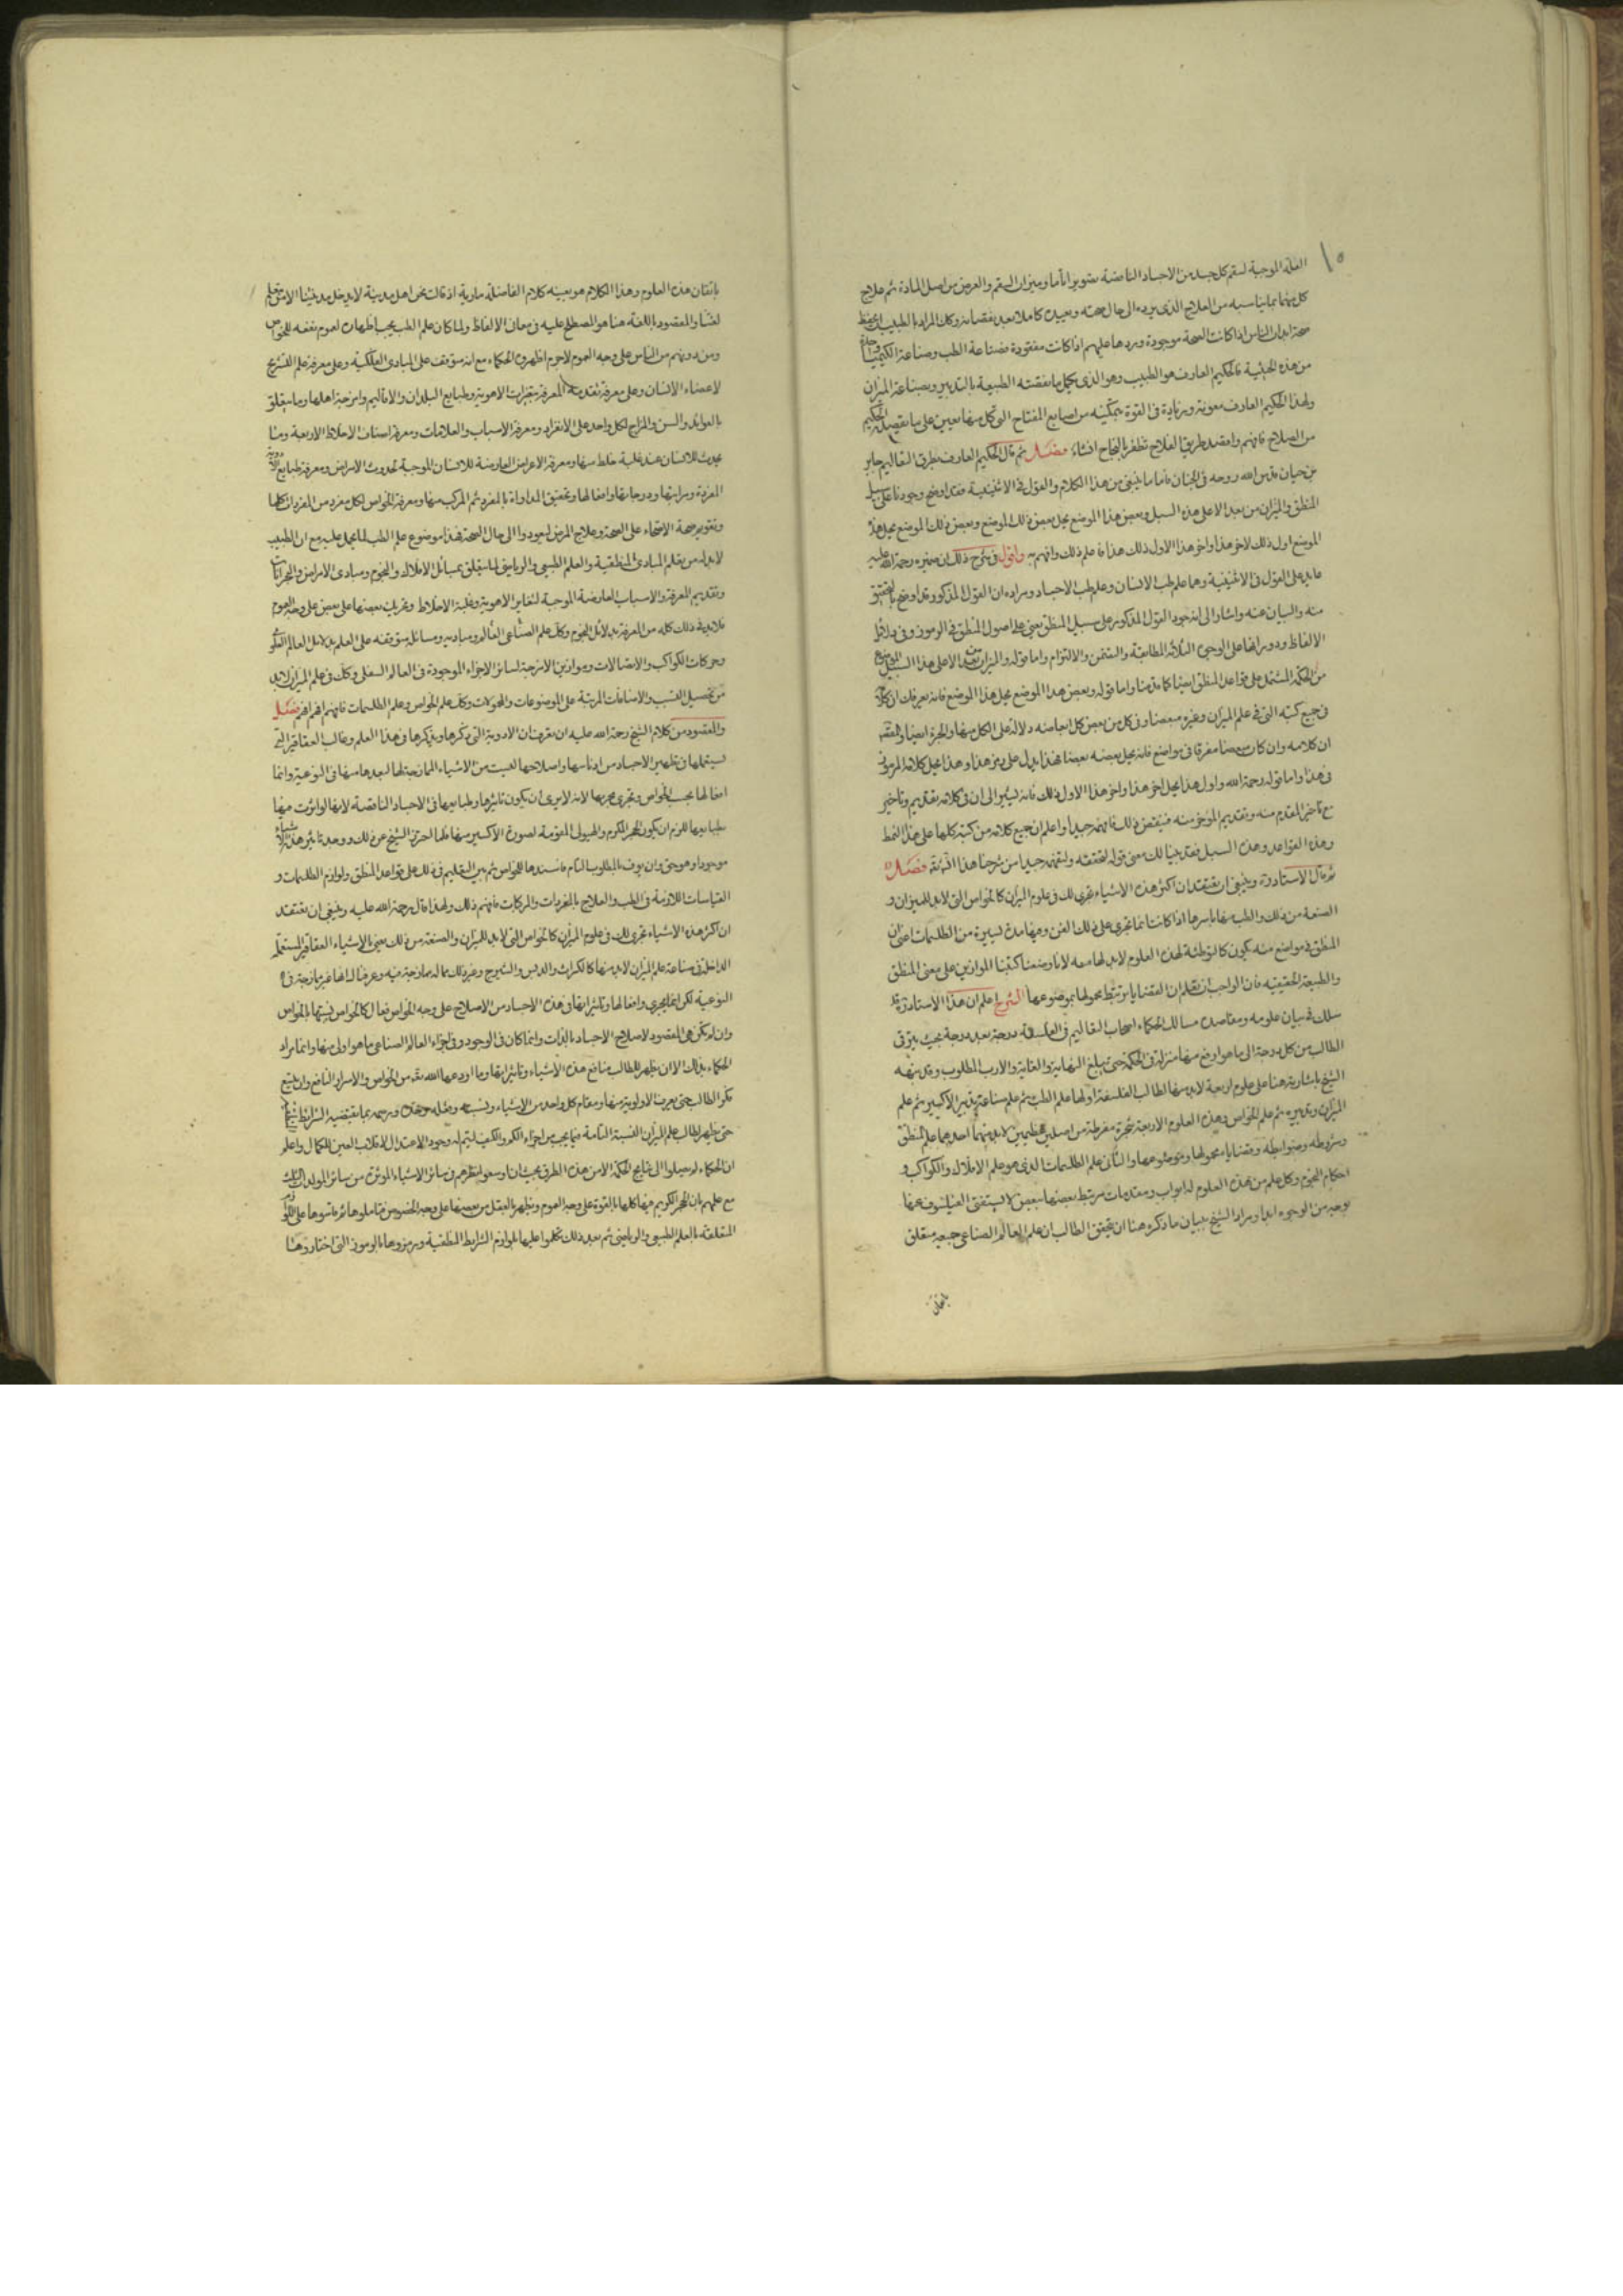 ١٥
العلة الموجبة لسقم كل جسد من الاجساد الناقصة تصويرا تاما وميزان السقم والعرض من اصل المادة ثم علاج
كل منهما بما يناسبه من العلاج الذى يرده الى حال صحته ويعيده كاملا بعد نقصانه وكان المراد بالطبيب ان يحفظ
صحة ابدان الناس اذا كانت الصحة موجودة ويردها عليهم اذا كانت مفقودة فصناعة الطب وصناعة الكيميا واحدة
من هذه الحيثية فالحكيم العارف هو الطبيب وهو الذى يكمل ما نقصته الطبيعة بالتدبير وبصناعة الميزان
ولهذا الحكيم العارف معونة وزيادة فى القوة بتمكينه من اصابع المفتاح التى كل منها يعين على ما يقصده الحكيم
من الصلاح فافهم واقصد طريق الفلاح تظفر بالنجاح فصل ثم قال الحكيم العارف بطرق التعاليم جابر
بن حيان قدس الله روحه فى الجنان فاما ما ينبغى من هذا الكلام والقول فى الاثنينية فقد اوضح وجودنا على سبيل
المنطق والميزان من بعد الا على هذه السبل وبعض هذا الموضع يحل بعض ذلك الموضع وبعض ذلك الموضع يحل هذا
الموضع اول ذلك لاخر هذا واخر هذا الاول ذلك هذا فاعلم ذلك وافهم به واقول فى شرح ذلك ان ضميره رحمة الله عليه
عايد على القول فى الاثنينية وهما علم طب الانسان وعلم طب الاجساد ومراده ان القول المذكور قد اوضح بالتحقيق
منه والبيان عنه واشار الى انه جود القول المذكور على سبيل المنطق يعنى على اصول المنطق فى الرموز وفى دلائل
الالفاظ ودورانها على الوجوه الثلاثة المطابقة والتضمن والالتزام واما قوله والميزان من بعد الا على هذا السبيل
من الحكمة المشتمل على قواعد المنطق ايضا كما قدمنا واما قوله وبعض هذا الموضع يحل هذا الموضع فانه يعرفك ان كلامه
فى جميع كتبه التى فى علم الميزان وغيره مبعضا وفى كل من بعض كل ابعاضه دلالة على الكل منها والجزء ايضا
ان كلامه وان كان مبعضا مفرقا فى مواضع فانه يحل بعضه بعضا فهذا يدل على رمز هذا وهذا يحل كلامه المرموز
فى هذا واما قوله رحمة الله واول هذا يحل اخر هذا واخر هذا الاول ذلك فانه يشير الى ان فى كلامه تقديم وتاخير
مع تاخير المقدم منه وتقديم المؤخر منه فافهمه جيدا واعلم ان جميع كلامه من كتبه كلها على هذا النمط
وهذه القواعد وهذه السبل فقد بينا لك معنى قوله لتحققه وتفهمه جيدا من شرحنا هذا فصل
ثم قال الاستاذ وينبغى ان تعتقد ان اكثر هذه الاشياء تجرى لك فى علوم الميزان كالخواص التى لابد للميزان و
الصنعة من ذلك والطب منها باسرها اذا كانت انما تجرى على ذلك الفن وفيها مدة يسيرة من الطلسمات
المنطق فى مواضع منه يكون كالتوطئة لهذه العلوم لابد لها معه لانا وضعنا كتبنا الموازين على معنى المنطق
والطبيعة الحقيقية فان الواجب ان تعلم ان القضايا يرتبط محمولها بموضوعها الشرح اعلم ان هذا الاستاذ قد
سلك فى بيان علومه ومقاصده مسالك الحكماء اصحاب التعاليم فى الفلسفة درجة بعد درجة بحيث يترقى
الطالب من كل درجة الى ما هو ارفع منها منزلة فى الحكمة حتى يبلغ النهاية والغاية والارب المطلوب وقد نبه
الشيخ باشارته هنا على علوم اربعة لابد منها لطالب الفلسفة اولها علم الطب ثم علم صناعة تدبير الاكسير ثم علم
الميزان وتدبيره ثم علم الخواص وهذه العلوم الاربعة شجرة مفرطة من اصلين عظيمين لابد منهما احدهما علم المنطق
وشروطه وضوابطه وقضاياه محمولها وموضوعها والثانى علم الطلسمات الذى هو علم الافلاك والكواكب و
احكام النجوم وكل علم من هذه العلوم له ابواب ومقدمات مرتبط بعضها ببعض لا يستغنى الفيلسوف عنها
بوجه من الوجوه ابدا ومراد الشيخ ببيان ما ذكره هنا ان يتحقق الطالب ان علم العالم الصناعى جميعه متعلق
باتقان
باتقان هذه العلوم وهذا الكلام هو بعينه كلام الفاضلة مارية اذ قالت نحن اهل مدينة لا يدخل مدينتنا الا من تعلم
لغتنا والمقصود باللغة هنا هو المصطلح عليه فى معانى الالفاظ ولما كان علم الطب يجب اظهاره لعموم نفعه للخواص
ومن دونهم من الناس على وجه العموم لاجرم اظهروه الحكماء مع انه متوقف على المبادى الفلكية وعلى معرفة علم التشريح
لاعضاء الانسان وعلى معرفة تقدمة المعرفة بتغيرات الاهوية وطبايع البلدان والاقاليم وامزجة اهلها وما يتعلق
بالعوائد والسن والمزاج لكل واحد على الانفراد ومعرفة الاسباب والعلامات ومعرفة اصناف الاخلاط الاربعة وما
يحدث للانسان عند غلبة خلط منها ومعرفة الاعراض العارضة للانسان الموجبة لحدوث الامراض ومعرفة طبايع الادوية
المفردة ومراتبها ودرجاتها وافعالها وتحقيق المداواة بالمفرد ثم المركب منها ومعرفة الخواص لكل مفرد من المفردات كلها
وتقويم صحة الاصحاء على الصحة وعلاج المرضى ليعودوا الى حال الصحة فهذا موضوع علم الطب لما يحمل عليه مع ان الطبيب
لابد له من تعلم المبادى المنطقية والعلم الطبيعى والرياضى لما يتعلق بمسائل الافلاك والنجوم ومبادى الامراض والبحرانات
وتقديم المعرفة والاسباب العارضة الموجبة لتغاير الاهوية وغلبة الاخلاط وتحريك بعضها على بعض على وجه العموم
فلابد فى ذلك كله من المعرفة بدلائل النجوم وكل علم الصناعى العالم ومباديه ومسائل متوقفه على العلم بدلايل العالم العلوى
وحركات الكواكب والاتصالات وموازين الامزجة لسائر الاجزاء الموجودة فى العالم السفلى وكذلك فى علم الميزان لابد
من تحصيل النسب والاضافات المرتبة على الموضوعات والمحمولات وكذلك علم الخواص وعلم الطلسمات فافهم فصل
والمقصود من كلام الشيخ رحمة الله عليه ان نعرفك ان الادوية التى ذكرها ويذكرها فى هذا العلم وغالب العقاقير التى
يستعملها فى تطهير الاجساد من ادناسها واصلاحها ليست من الاشياء الممازجة لها لبعدها منها فى النوعية وانما
افعالها بحسب الخواص وتجرى مجراها لانه لا يرى ان يكون تاثيرها وطبايعها فى الاجساد الناقصة لانها لو اثرت فيها
بطبايعها للزم ان يكون الحجر المكرم والهيولى المقومة لصورة الاكسير منها فلما احترز الشيخ عن ذلك ووجد تاثير هذه الاشياء
موجودا وهو حق وان يوف بالمطلوب التام فاسندها للخواص ثم بين التعليم فى ذلك على قواعد المنطق ولوازم الطلسمات و
القياسات اللازمة فى الطب والعلاج بالمفردات والمركبات فافهم ذلك ولهذا قال رحمة الله عليه وينبغى ان تعتقد
ان اكثر هذه الاشياء تجرى لك فى علوم الميزان كالخواص التى لابد للميزان والصنعة من ذلك يعنى بالاشياء العقاقير المستعملة
الداخلة فى صناعة علم الميزان لابد منها كالكراث والدبس والشيرج وغير ذلك مما له ممازجة فيه وعرضنا انها غير ممازجة فى
النوعية لكن انما يجرى وافعالها وتاثيراتها فى هذه الاجساد من الاصلاح على وجه الخواص فعال كالخواص نسبتها بالخواص
وان لم يكن هى المقصود لاصلاح الاجساد بالذات وانما كان فى الوجود وفى اجزاء العالم الصناعى ما هو اولى منها وانما مراد
الحكماء بذلك الا ان يظهر للطالب منافع هذه الاشياء وتاثيراتها وما اودعها الله تعالى من الخواص والاسرار النافع وان يتسع
فكر الطالب حتى يعرف الاولوية منها ومقام كل واحد من الاشياء ونسبته ورسمه بما تقتضيه الشرايط
حتى يظهر لطالب علم الميزان النسبة التامة فيما يجب من اجزاء الكم والكيف ليتم له وجود الاعتدال لانقلاب العين للكمال واعلم
ان الحكماء لم يصلوا الى نتايج الحكمة الا من هذه الطرق بحيث ان وسعوا نظرهم فى سائر الاشياء الموثرة من سائر المولدات الثلث
مع علمهم بان الحجر الكريم فيها كلها بالقوة على وجه العموم ويظهر بالفعل من بعضها على وجه الخصوص فتاملوها ثم قاسوها على
المتعلقة بالعلم الطبيعى والرياضى ثم بعد ذلك تكلموا عليها بلوازم الشرايط المنطقية ورمزوها بالرموز التى اختاروها